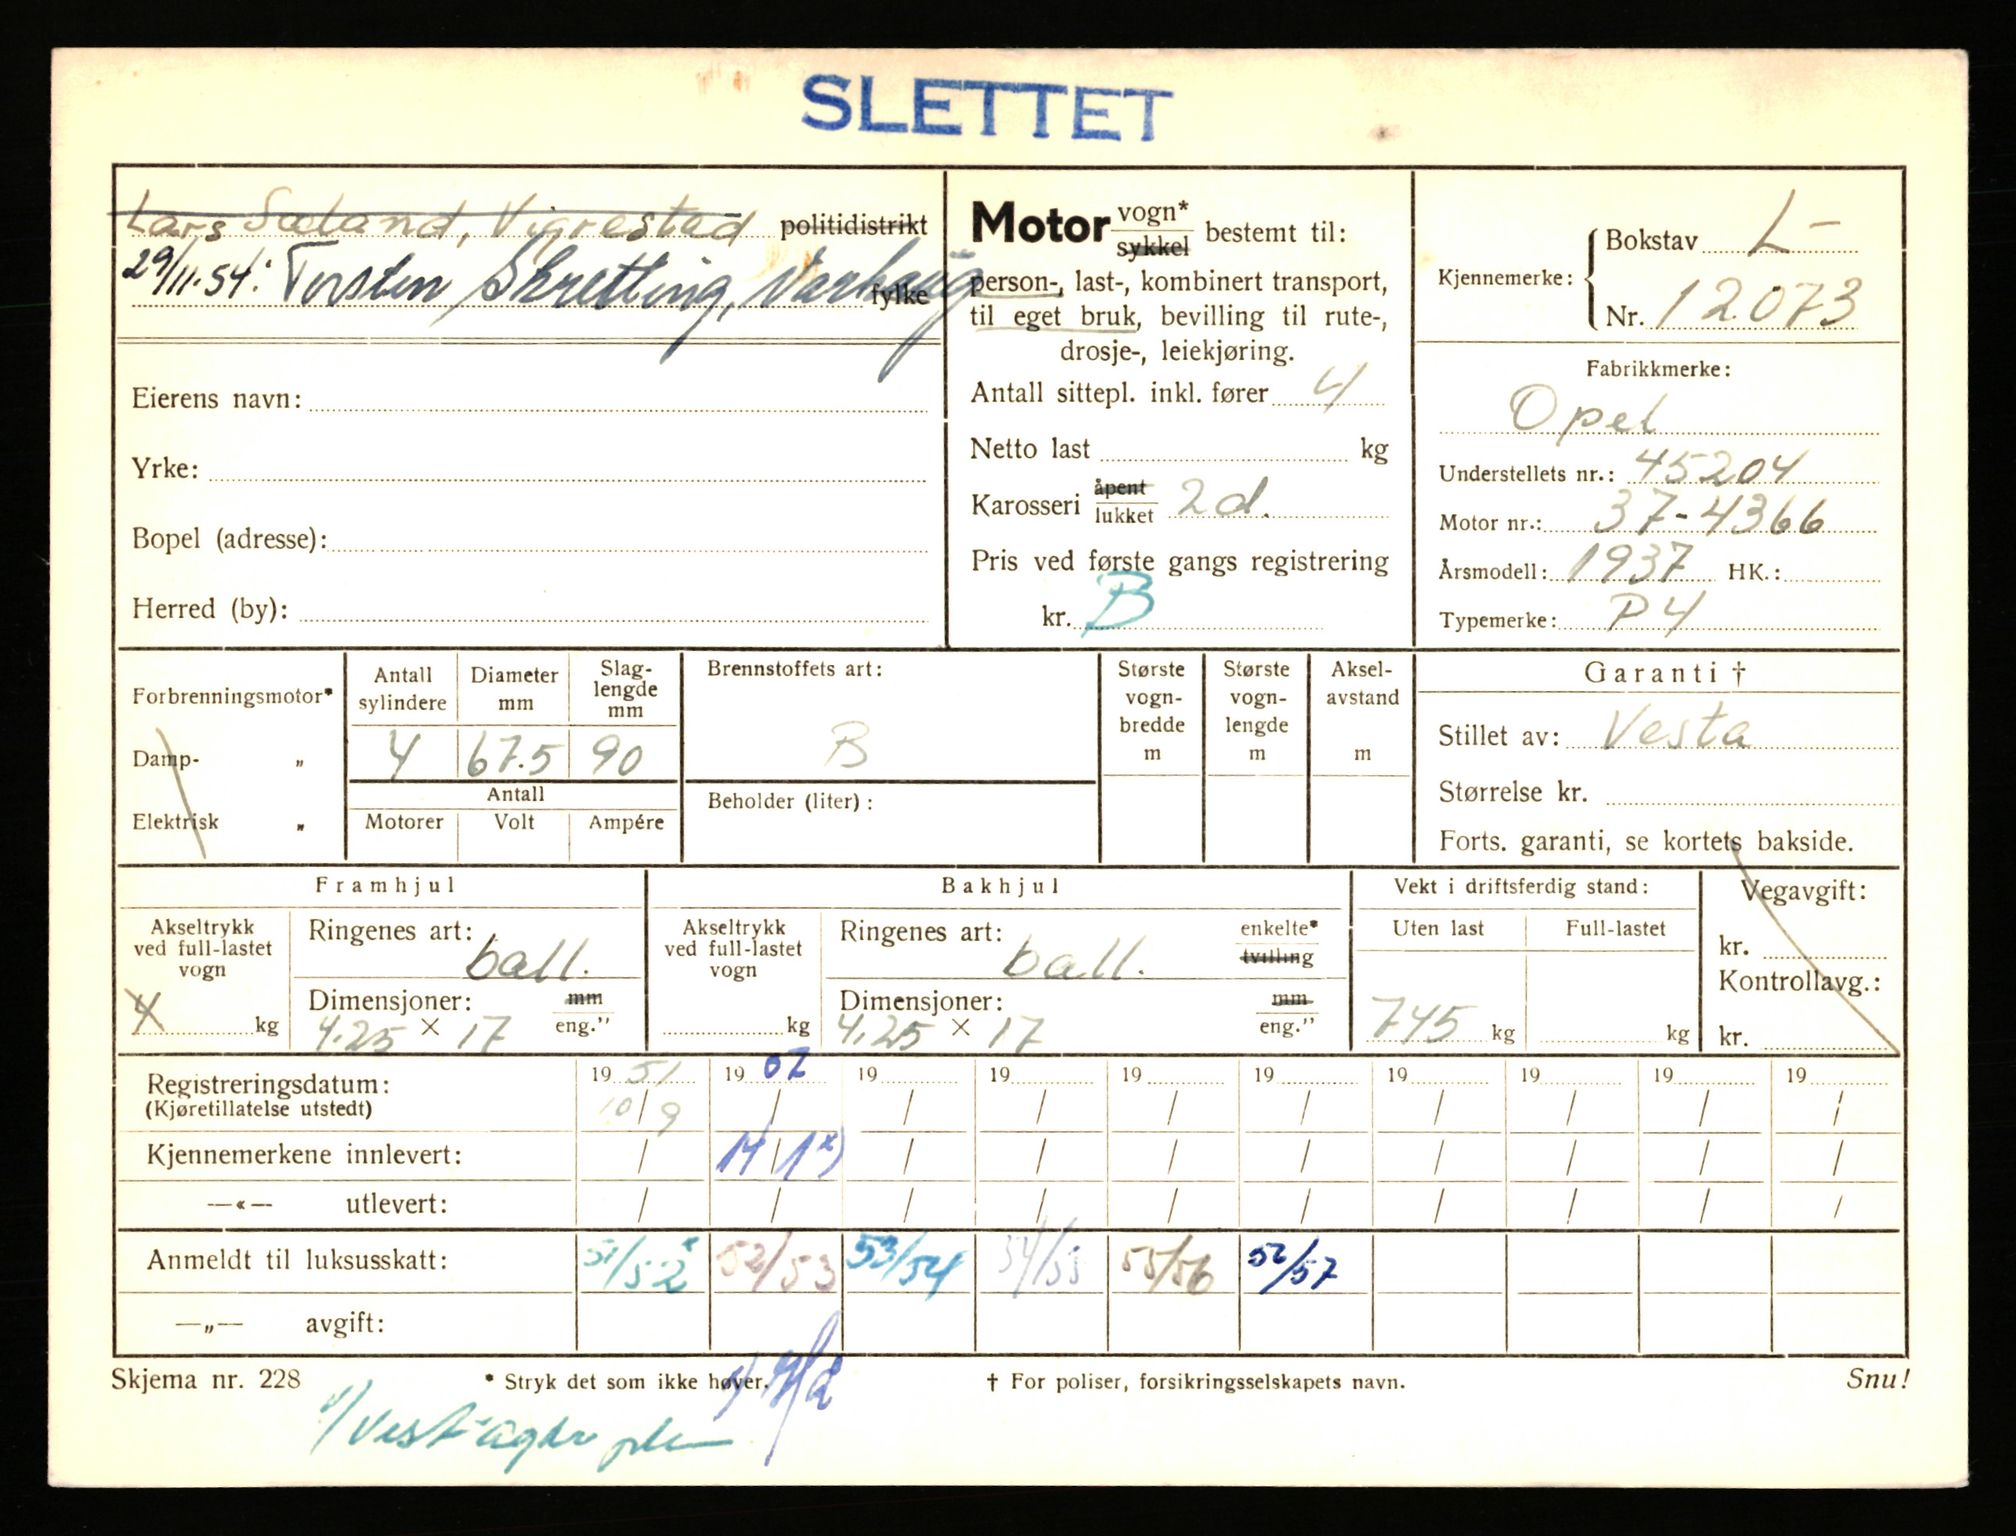 SLETTET
Lars Sæland, Vigrestad politidistrikt
29/11.54: Torsten Skretting, Varhaug fylke
Eierens navn:
Yrke:
Bopel (adresse):
Herred (by):
Motor vogn* sykkel bestemt til:
person-, last-, kombinert transport,
til eget bruk, bevilling til rute-,
drosje-, leiekjøring.
Antall sittepl. inkl. fører 4
Netto last kg
Karosseri åpent lukket 2d.
Pris ved første gangs registrering
kr. B
Kjennemerke: Bokstav L-
Nr. 12073
Fabrikkmerke:
Opel
Understellets nr.: 45204
Motor nr.: 37-4366
Årsmodell: 1937 HK.:
Typemerke: P4
Forbrenningsmotor*
Damp- „
Elektrisk „
Antall sylindere Diameter mm Slag-lengde mm
4 67.5 90
Antall
Motorer Volt Ampére
Brennstoffets art:
B
Beholder (liter):
Største vogn-bredde m
Største vogn-lengde m
Aksel-avstand m
Garanti †
Stillet av: Vesta
Størrelse kr.
Forts. garanti, se kortets bakside.
Framhjul
Akseltrykk ved full-lastet vogn
X kg
Ringenes art: ball.
Dimensjoner: mm
4.25 × 17 eng."
Bakhjul
Akseltrykk ved full-lastet vogn
kg
Ringenes art: enkelte*
ball. tvilling
Dimensjoner: mm
4.25 × 17 eng."
Vekt i driftsferdig stand:
Uten last Full-lastet
745 kg kg
Vegavgift:
kr.
Kontrollavg.:
kr.
Registreringsdatum: 19 51 19 62 19 19 19 19 19 19 19 19
(Kjøretillatelse utstedt) 10/9 / / / / / / / / /
Kjennemerkene innlevert: / 14/1 x) / / / / / / / /
—«— utlevert: / / / / / / / / / /
Anmeldt til luksusskatt: 51/52* 52/53 53/54 54/55 55/56 56/57
—„— avgift:
Skjema nr. 228 * Stryk det som ikke høver. † For poliser, forsikringsselskapets navn. Snu!
Vest-agder